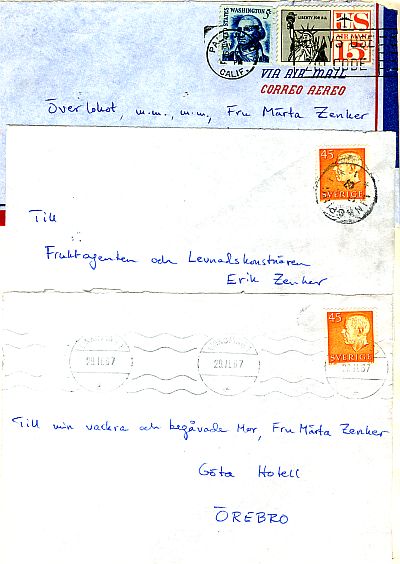 UNITED STATES
WASHINGTON 5¢
LIBERTY FOR ALL
US
AIR MAIL
15¢
CALIF.
CODE
VIA AIR MAIL
CORREO AEREO
Överlohot, m.m., m.m., Fru Märta Zenker
45
SVERIGE
Till
Fruktagenten och Levnadskonstnären
Erik Zenker
45
SVERIGE
29.11.67
29.11.67
29.11.67
Till min vackra och begåvade Mor, Fru Märta Zenker
Göta Hotell
ÖREBRO